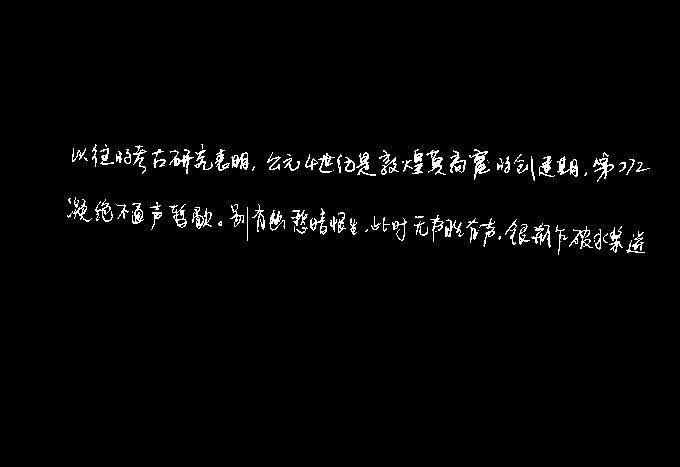 以往的考古研究表明，公元4世纪是敦煌莫高窟的创建期，第272
凝绝不通声暂歇。别有幽愁暗恨生，此时无声胜有声。银瓶乍破水浆迸